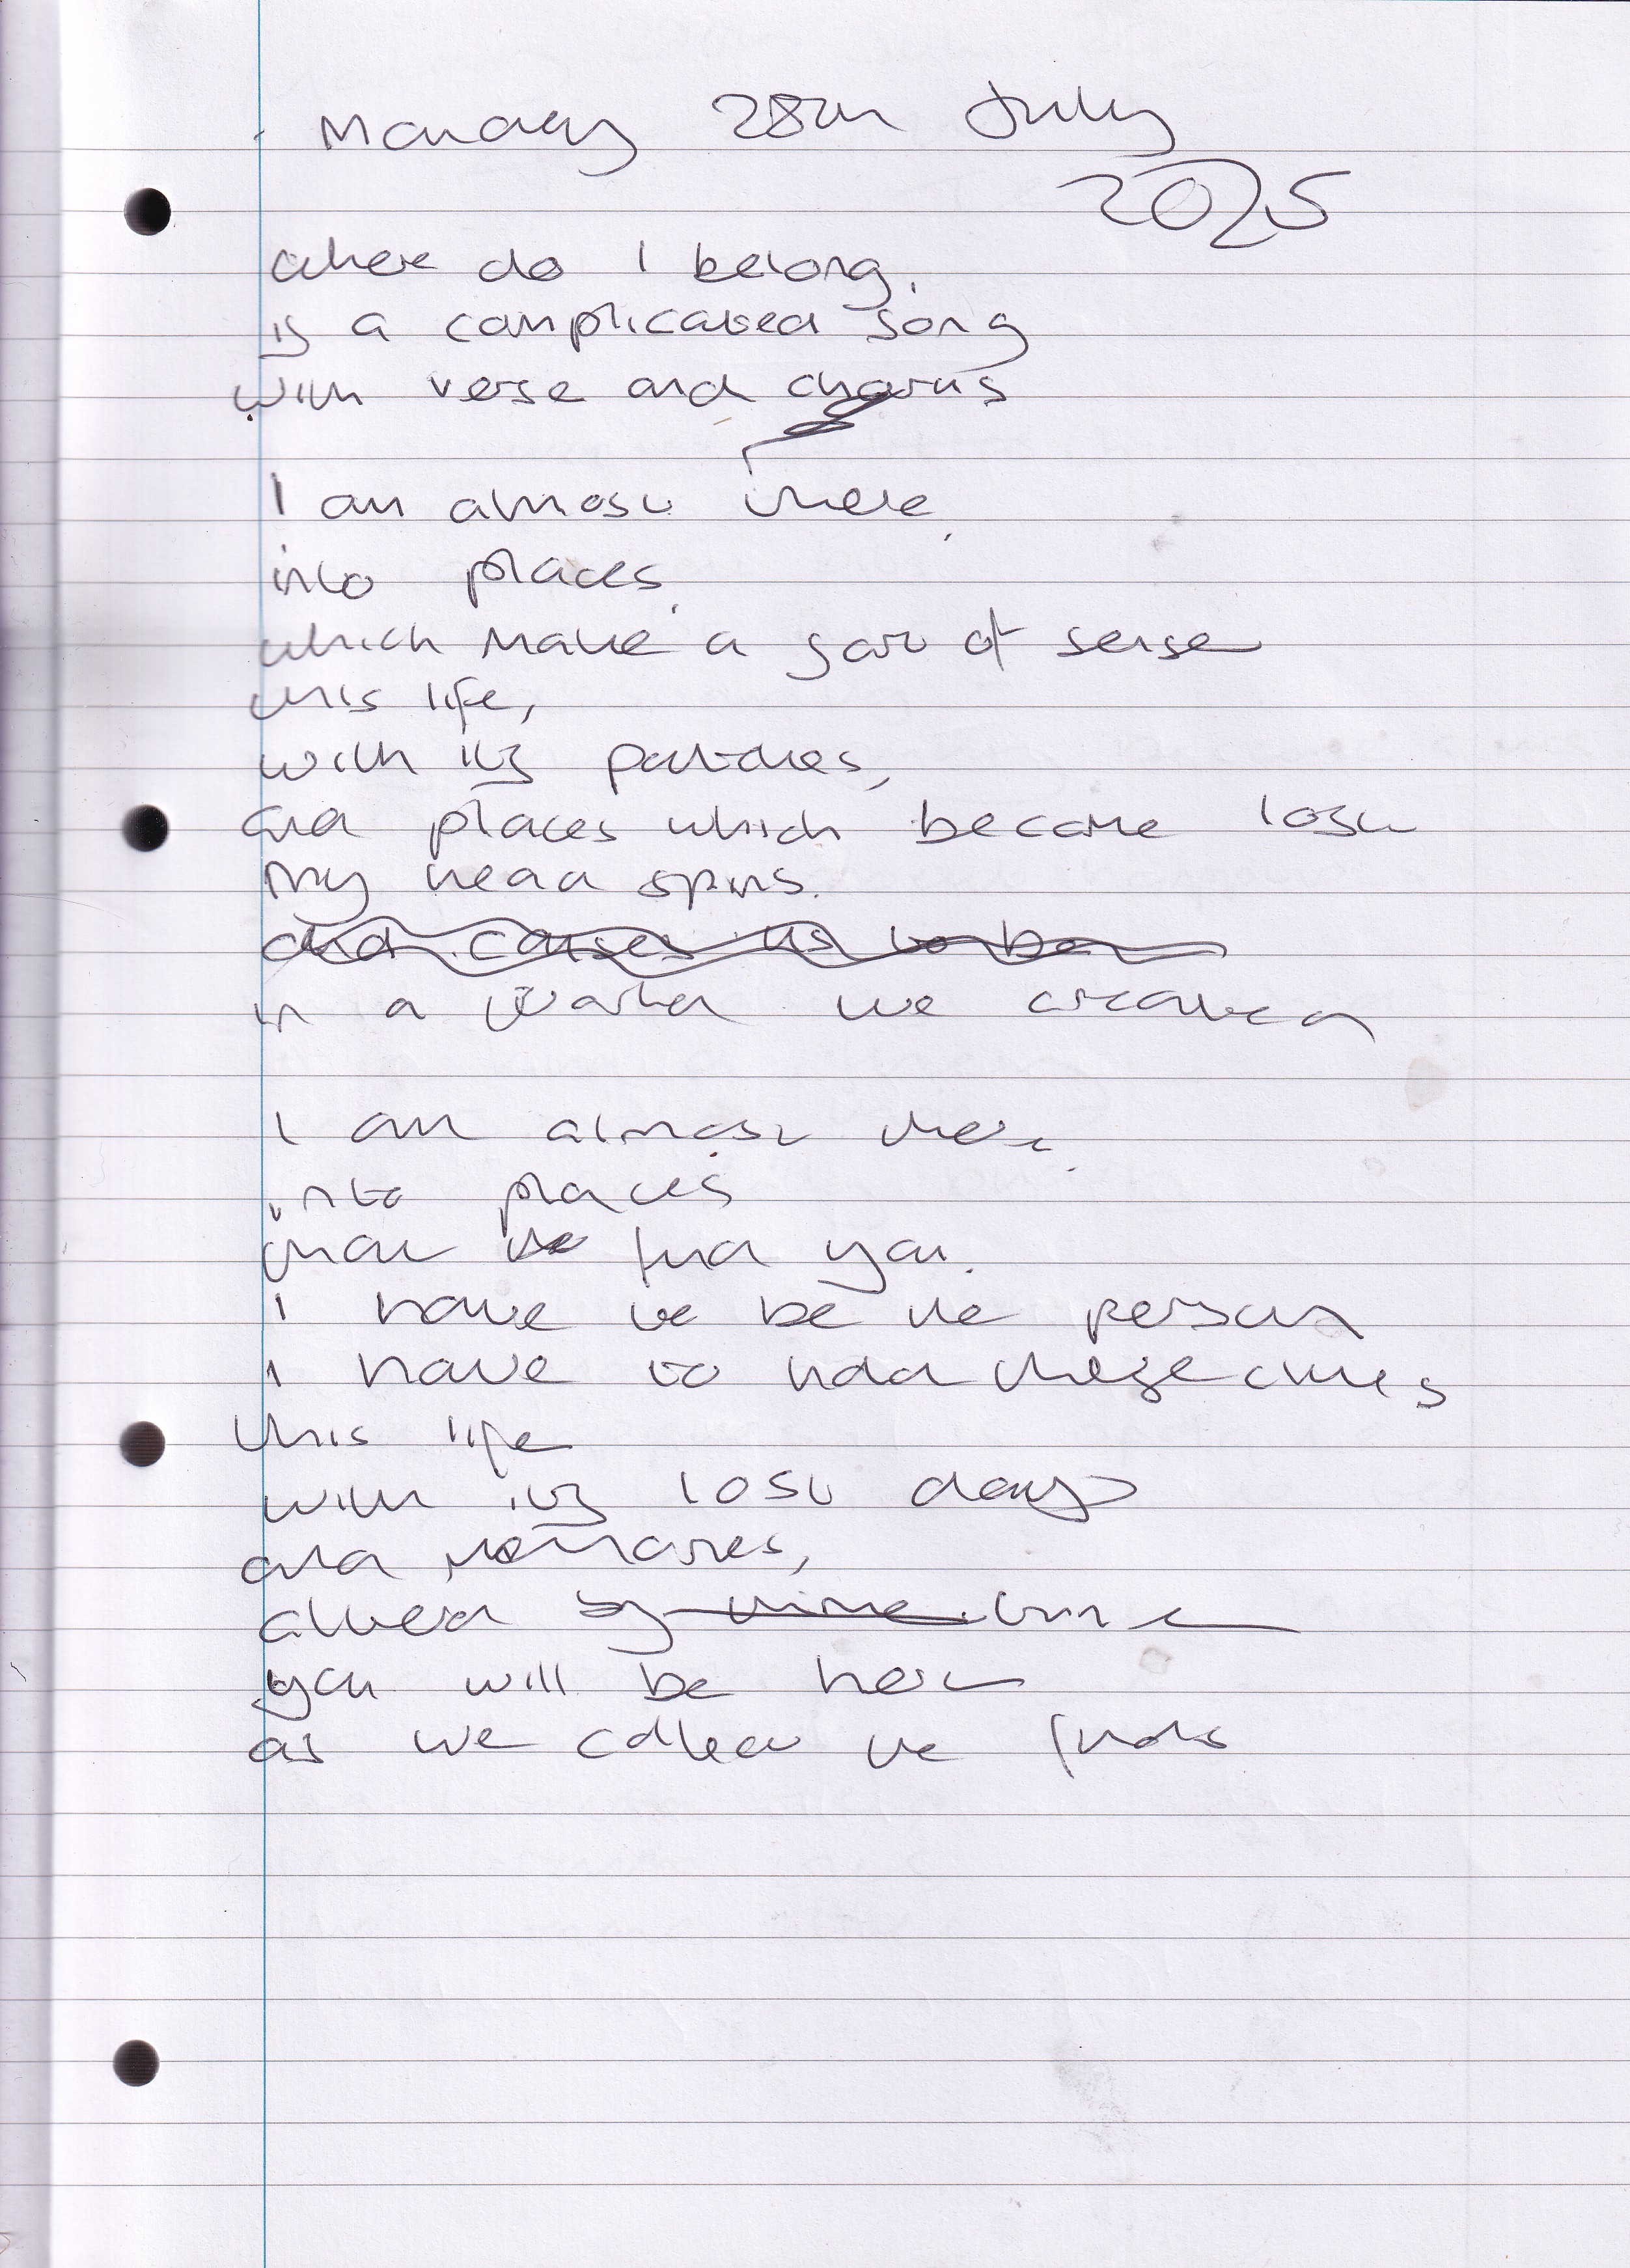 Monday 28th July
2025
where do I belong,
is a complicated song
with verse and chorus
I am almost there,
into places,
which make a sort of sense
this life,
with its patches,
and places which become lost
my head spins.
and causes us to be
in a world we created
I am almost there,
into places
that find you.
I have to be the person
I have to hold these
this life
with its lost days
and memories,
altered by time time
you will be here
as we collect the finds